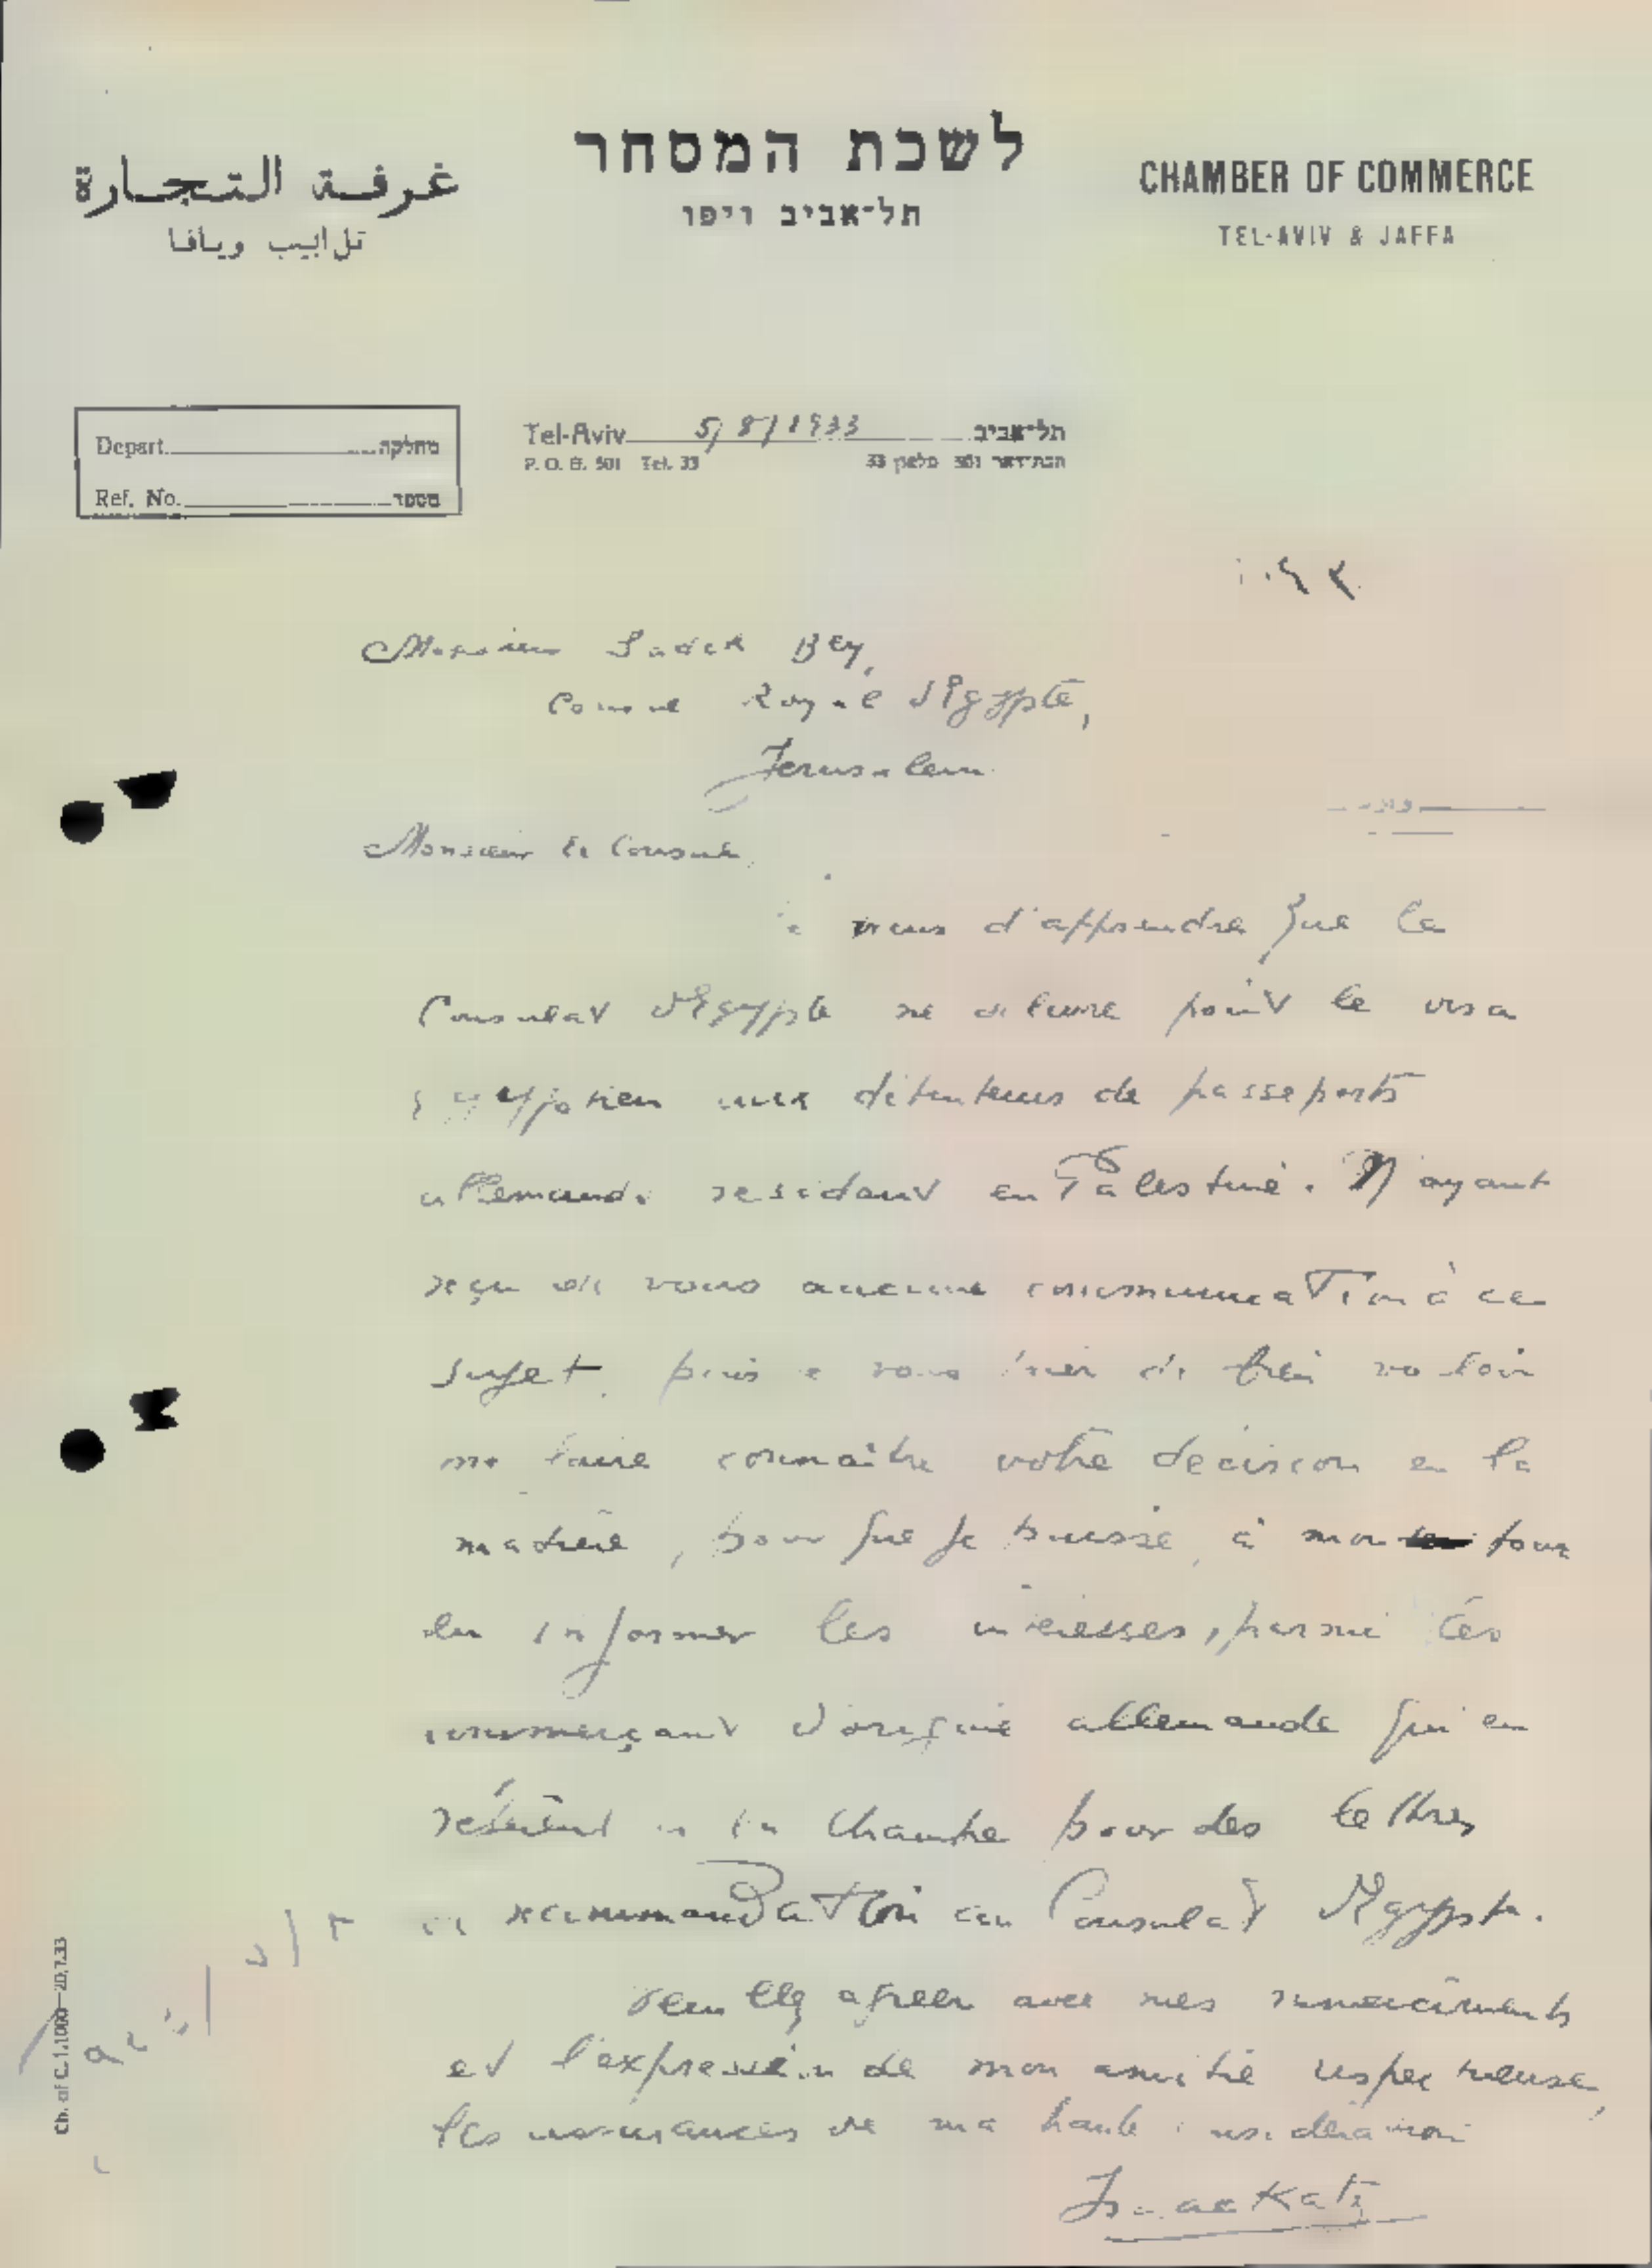 غرفة التجارة
تل ابيب ويافا
לשכת המסחר
תל־אביב ויפו
CHAMBER OF COMMERCE
TEL-AVIV & JAFFA
Depart. מחלקה
Ref. No. מספר
Tel-Aviv 5/8/1933 תל־אביב
P. O. B. 501 Tel. 33 תבת־דאר 501 טלפון 33
Monsieur Sadek Bey,
Consul Royal d'Egypte,
Jerusalem
Monsieur le Consul,
viens d'apprendre que le
Consulat d'Egypte ne délivre point le visa
aux détenteurs de passeports
allemands residant en Palestine. N'ayant
reçu de vous aucune communication à ce
sujet, puis vous prier de bien vouloir
me faire connaître votre décision en la
matière, pour que je puisse, à mon tour
en informer les intéressés, parmi les
commerçant d'origine allemande qui en
la Chambre pour des lettres
de recommandation au Consulat d'Egypte.
Veuillez agréer avec mes remerciements
et l'expression de mon amitié respectueuse,
les assurances de ma haute considération
Isaac Katz
Ch. of C. 1.1000—20.7.33